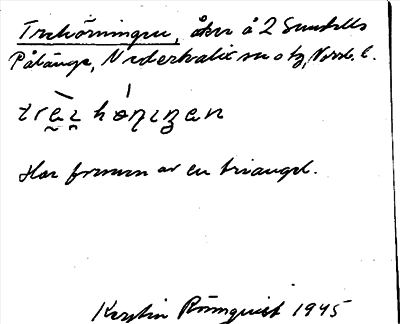 Trehörningen, åker å 2 Sundells
Pålänge, Nederkalix sn o tg, Norrb. l.
Har formen av en triangel.
Kerstin Rönnquist 1945